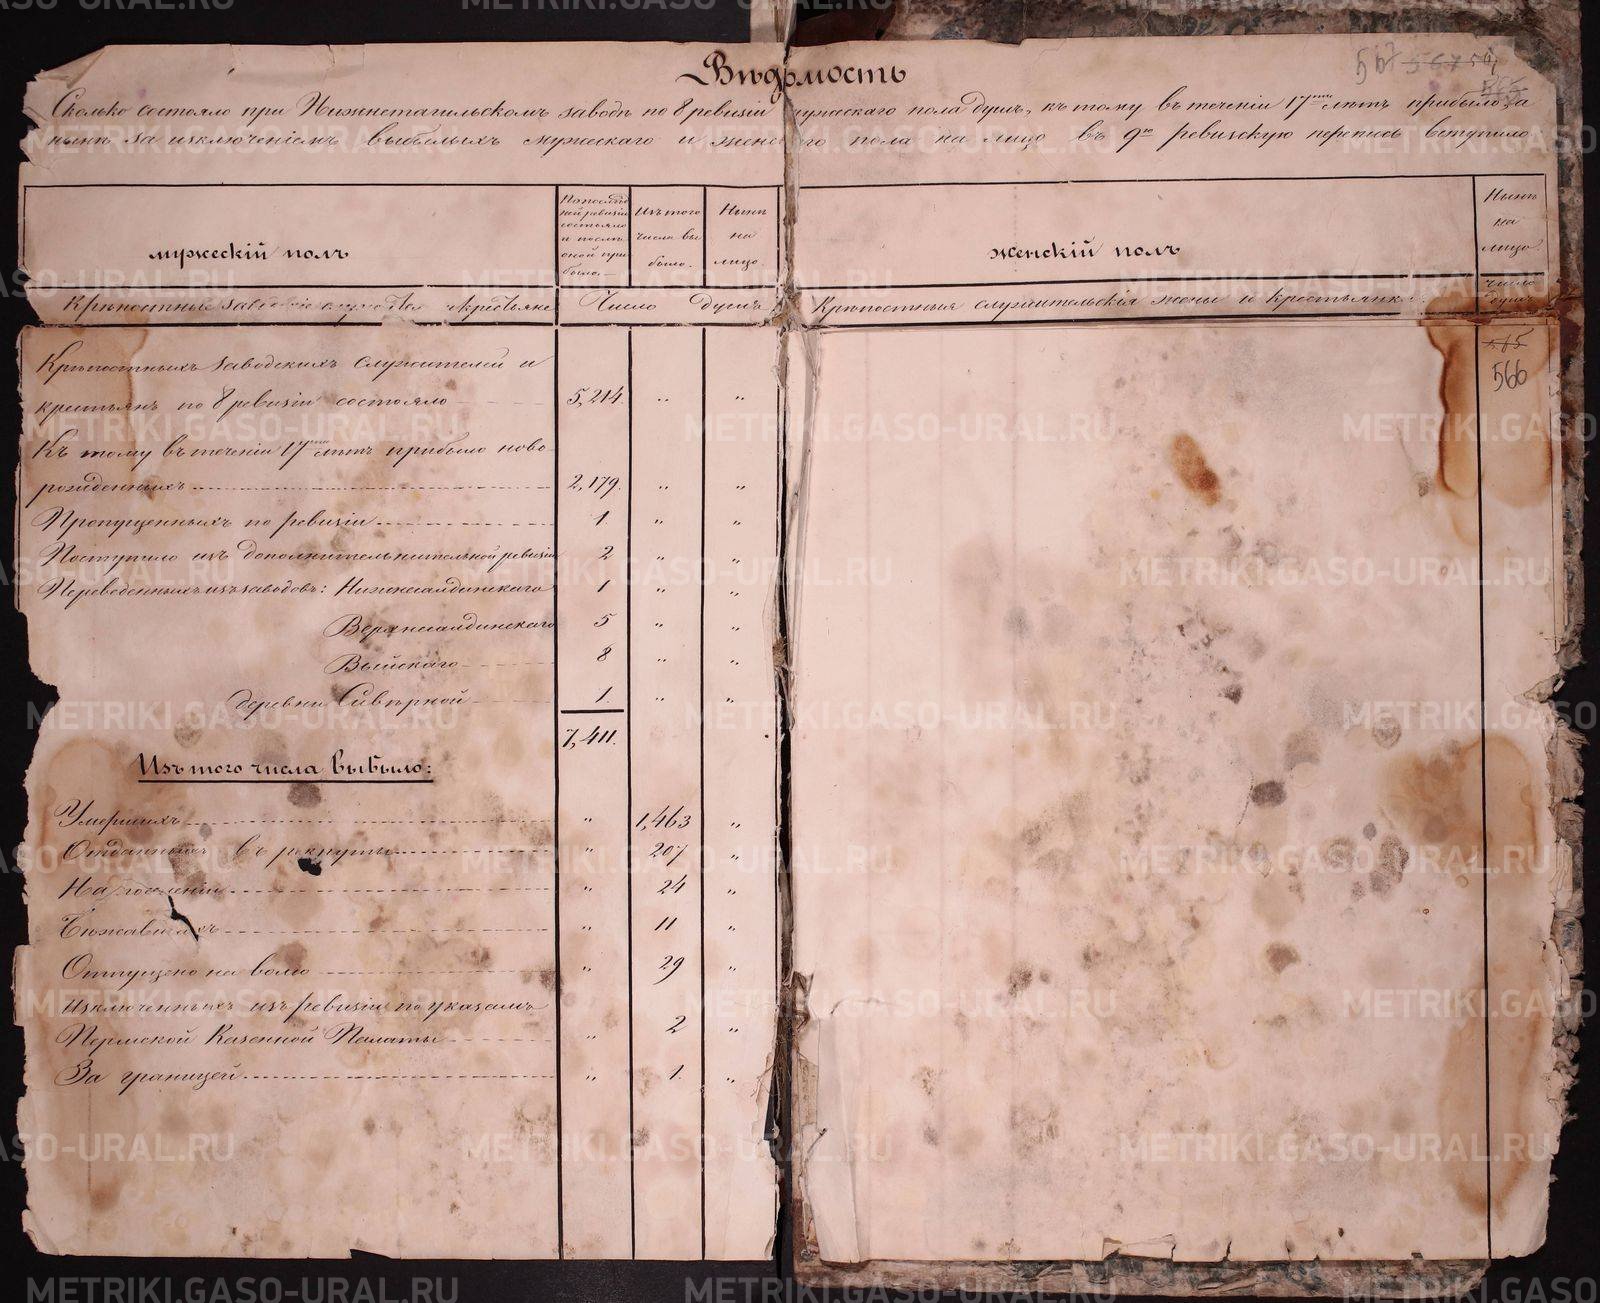 Вѣдомость
567 567 501
565
Сколько состояло при Нижнетагильскомъ заводѣ по 8 ревизіи мужескаго пола душъ, къ тому въ теченіи 17ти лѣтъ прибыло, а
нынѣ за изключеніемъ выбылыхъ мужескаго и женскаго пола на лицо въ 9ю ревизскую перепись вступило
мужескій полъ
По послѣдней ревизіи состояло и послѣ оной прибыло.
Изъ того числа выбыло.
Нынѣ на лицо.
женскій полъ
Нынѣ на лицо.
Крѣпостные крестьяне
Число душъ
Крѣпостныя служительскія жены и крестьянки
число душъ
566
Крѣпостныхъ заводскихъ служителей и
крестьянъ по 8 ревизіи состояло 5,214. „ „
Къ тому въ теченіи 17ти лѣтъ прибыло ново-
рожденныхъ 2,179. „ „
Пропущенныхъ по ревизіи 1. „ „
Поступило изъ дополнительнительной ревизіи 2 „ „
Переведенныхъ изъ заводовъ: Нижнесалдинскаго 1 „ „
Верхнесалдинскаго 5 „ „
Выйскаго 8 „ „
деревни Сивѣркой 1. „ „
7,411.
Изъ того числа выбыло:
Умершихъ „ 1,463 „
Отданныхъ въ рекруты „ 207 „
На поселеніи „ 24 „
Бѣжавшихъ „ 11 „
Отпущено на волю „ 29 „
Изключенныхъ изъ ревизіи по указамъ
Пермской Казенной Палаты „ 2 „
За границей „ 1. „
METRIKI.GASO-URAL.RU